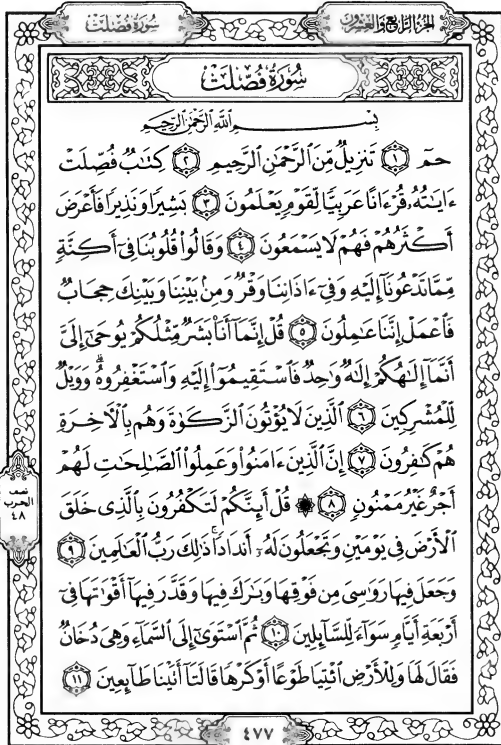 الجزء الرابع والعشرون
سورة فصلت
سُورَةُ فُصِّلَتْ
بِسْمِ اللَّهِ الرَّحْمَٰنِ الرَّحِيمِ
حمٓ ١ تَنزِيلٌ مِّنَ الرَّحْمَٰنِ الرَّحِيمِ ٢ كِتَابٌ فُصِّلَتْ
ءَايَاتُهُۥ قُرْءَانًا عَرَبِيًّا لِّقَوْمٍ يَعْلَمُونَ ٣ بَشِيرًا وَنَذِيرًا فَأَعْرَضَ
أَكْثَرُهُمْ فَهُمْ لَا يَسْمَعُونَ ٤ وَقَالُوا۟ قُلُوبُنَا فِىٓ أَكِنَّةٍ
مِّمَّا تَدْعُونَآ إِلَيْهِ وَفِىٓ ءَاذَانِنَا وَقْرٌ وَمِنۢ بَيْنِنَا وَبَيْنِكَ حِجَابٌ
فَٱعْمَلْ إِنَّنَا عَٰمِلُونَ ٥ قُلْ إِنَّمَآ أَنَا۠ بَشَرٌ مِّثْلُكُمْ يُوحَىٰٓ إِلَىَّ
أَنَّمَآ إِلَٰهُكُمْ إِلَٰهٌ وَٰحِدٌ فَٱسْتَقِيمُوٓا۟ إِلَيْهِ وَٱسْتَغْفِرُوهُ ۗ وَوَيْلٌ
لِّلْمُشْرِكِينَ ٦ ٱلَّذِينَ لَا يُؤْتُونَ ٱلزَّكَوٰةَ وَهُم بِٱلْءَاخِرَةِ
هُمْ كَٰفِرُونَ ٧ إِنَّ ٱلَّذِينَ ءَامَنُوا۟ وَعَمِلُوا۟ ٱلصَّٰلِحَٰتِ لَهُمْ
أَجْرٌ غَيْرُ مَمْنُونٍ ٨ ۞ قُلْ أَئِنَّكُمْ لَتَكْفُرُونَ بِٱلَّذِى خَلَقَ
ٱلْأَرْضَ فِى يَوْمَيْنِ وَتَجْعَلُونَ لَهُۥٓ أَندَادًا ۚ ذَٰلِكَ رَبُّ ٱلْعَٰلَمِينَ ٩
وَجَعَلَ فِيهَا رَوَٰسِىَ مِن فَوْقِهَا وَبَٰرَكَ فِيهَا وَقَدَّرَ فِيهَآ أَقْوَٰتَهَا فِىٓ
أَرْبَعَةِ أَيَّامٍ سَوَآءً لِّلسَّآئِلِينَ ١٠ ثُمَّ ٱسْتَوَىٰٓ إِلَى ٱلسَّمَآءِ وَهِىَ دُخَانٌ
فَقَالَ لَهَا وَلِلْأَرْضِ ٱئْتِيَا طَوْعًا أَوْ كَرْهًا قَالَتَآ أَتَيْنَا طَآئِعِينَ ١١
نصف
الحزب
٤٨
٤٧٧